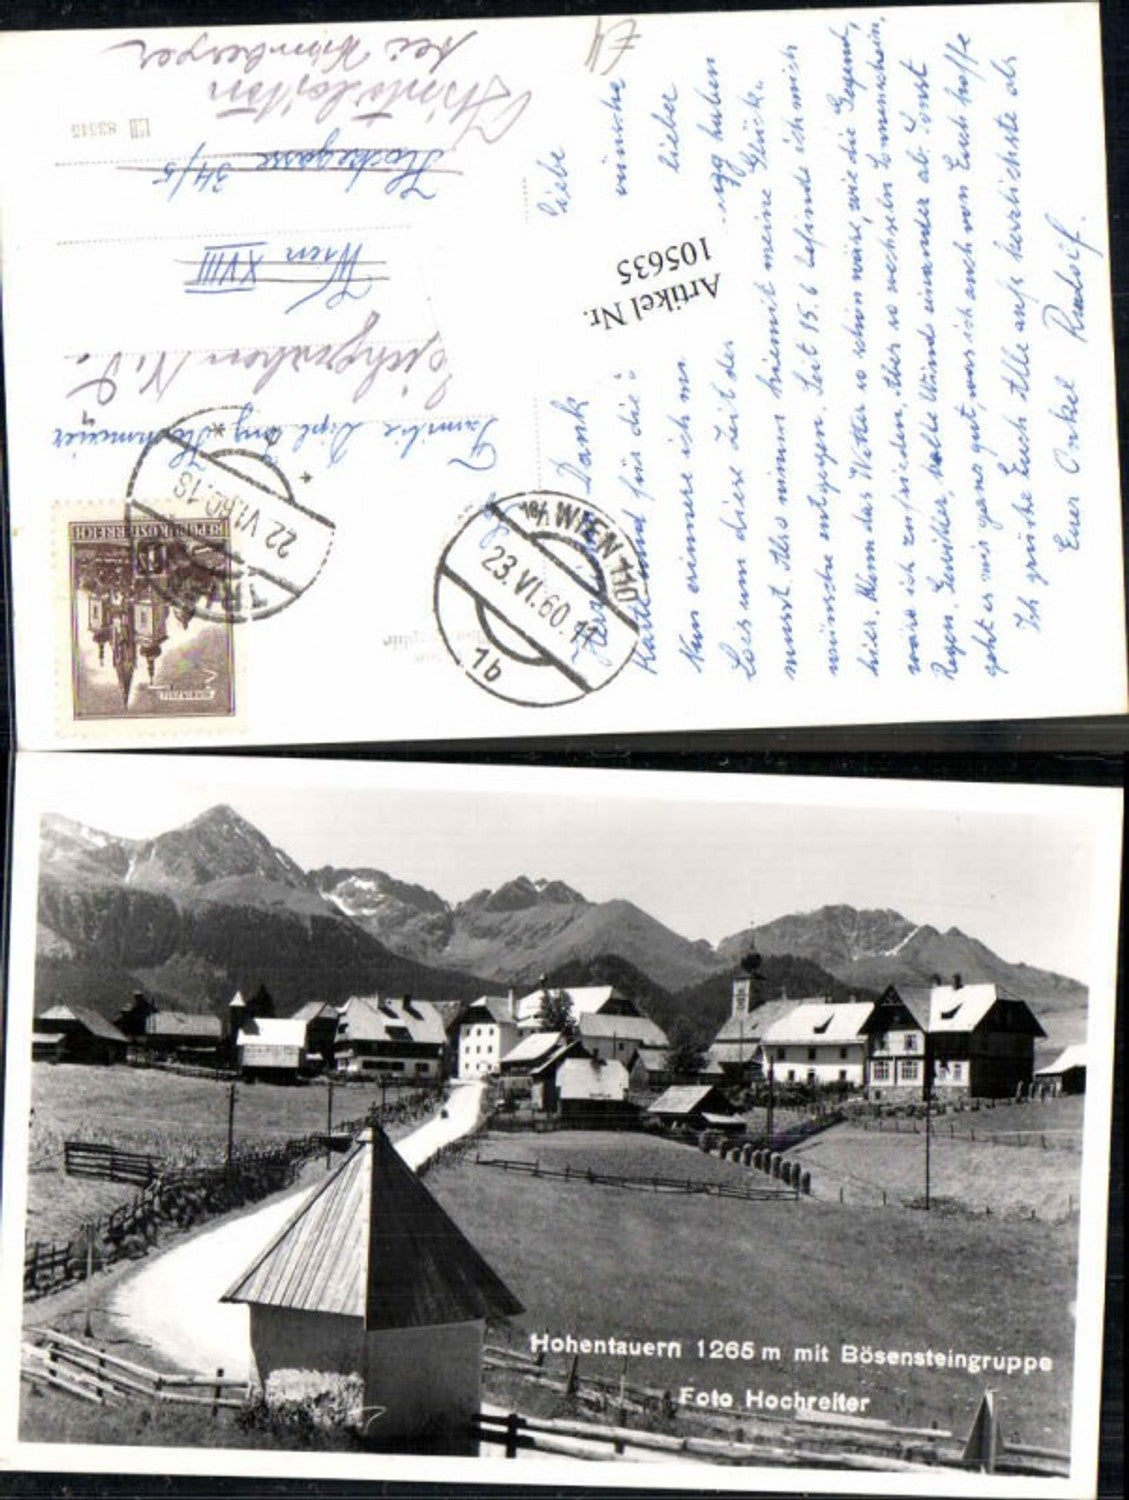 Liebe
wünsche
Dank
lieber
Karte und für die
Nun erinnere ich mi
Lois um diese Zeit der ...gg haben
musst. Also nimm hiemit meine Glück-
wünsche entgegen. Seit 15.6 befinde ich mich
hier. Wenn das Wetter so schön wäre, wie die Gegend,
wäre ich zufrieden. Aber so wechseln Sonnenschein,
Regen, Gewitter, kalte Winde einander ab. Sonst
geht es mir ganz gut, was ich auch von Euch hoffe
Ich grüße Euch Alle aufs herzlichste als
Euer Onkel Rudolf.
Artikel Nr.
105635
REPUBLIK ÖSTERREICH
MARIAZELL
22.VI.60.18
TRIEBEN
18/1 WIEN 110
23.VI.60.11
1b
Familie Dipl Ing
Wien XVIII
Hockegasse 34/5
bei
83315
Hohentauern 1265 m mit Bösensteingruppe
Foto Hochreiter